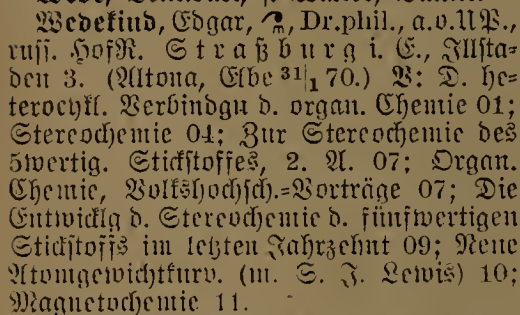 Wedekind, Edgar, Dr.phil., a.o.UP.,
russ. HofR. Straßburg i. E., Illsta-
den 3. (Altona, Elbe 31/1 70.) V: D. he-
terocykl. Verbindgn d. organ. Chemie 01;
Stereochemie 04; Zur Stereochemie des
5wertig. Stickstoffes, 2. A. 07; Organ.
Chemie, Volkshochsch.-Vorträge 07; Die
Entwicklg d. Stereochemie d. fünfwertigen
Stickstoffs im letzten Jahrzehnt 09; Neue
Atomgewichtkurv. (m. S. J. Lewis) 10;
Magnetochemie 11.